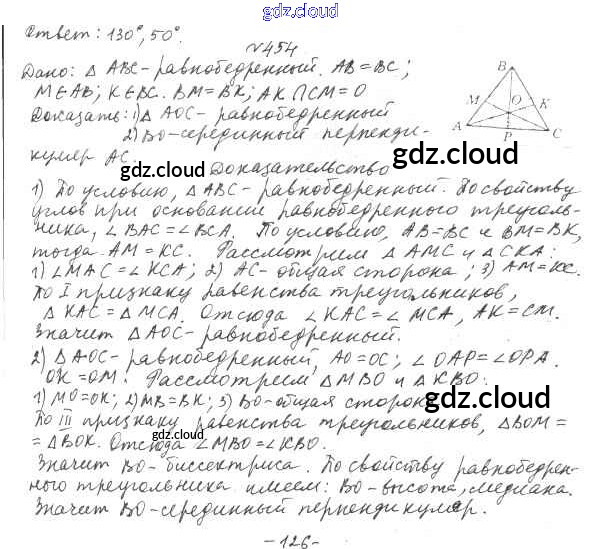 gdz.cloud
Ответ: 130°, 50°.
№454
Дано: △ ABC - равнобедренный. AB = BC;
M∈AB; K∈BC. BM = BK; AK ∩ CM = O
Доказать: 1) △ AOC - равнобедренный
2) BO - серединный перпенди-
куляр AC.
B
M
O
K
A
P
C
gdz.cloud
gdz.cloud
Доказательство
1) По условию, △ABC - равнобедренный. По свойству
углов при основании равнобедренного треуголь-
ника, ∠BAC = ∠BCA. По условию, AB = BC и BM = BK,
тогда AM = KC. Рассмотрим △ AMC и △ CKA:
1) ∠MAC = ∠KCA; 2) AC - общая сторона; 3) AM = KC.
По I признаку равенства треугольников,
△ KAC = △ MCA. Отсюда ∠KAC = ∠MCA, AK = CM.
Значит △AOC - равнобедренный.
2) △AOC - равнобедренный, AO = OC; ∠OAP = ∠OPA.
OK = OM. Рассмотрим △MBO и △KBO:
1) MO = OK; 2) MB = BK; 3) BO - общая сторона
gdz.cloud
По III признаку равенства треугольников, △BOM =
= △BOK. Отсюда ∠MBO = ∠KBO.
gdz.cloud
Значит BO - биссектриса. По свойству равнобедрен-
ного треугольника имеем: BO - высота, медиана.
Значит BO - серединный перпендикуляр.
- 126 -
gdz.cloud